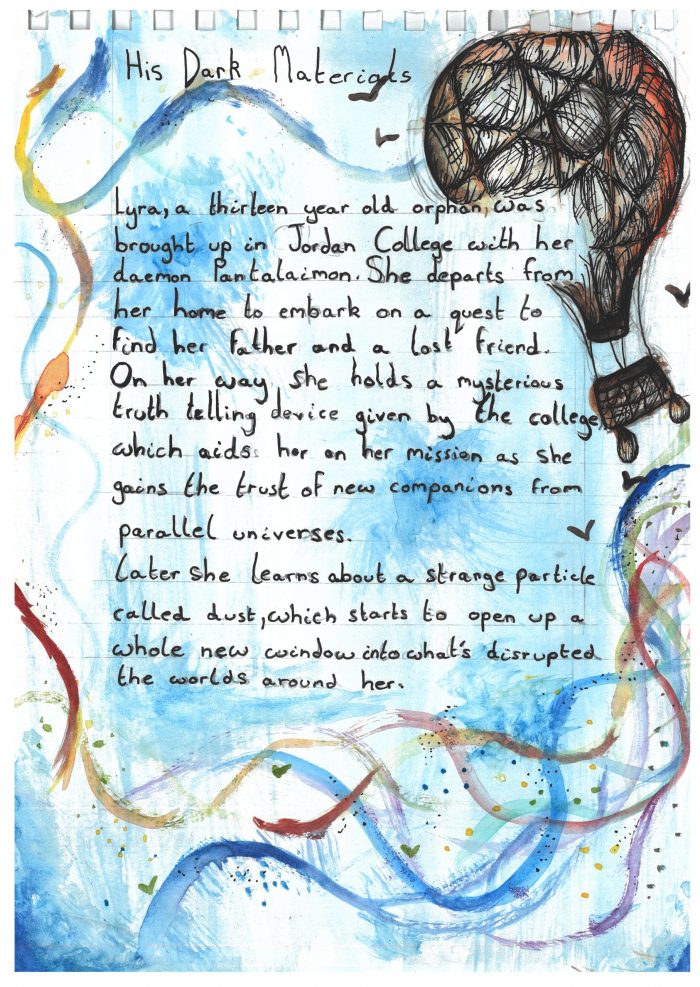 His Dark Materials
Lyra, a thirteen year old orphan, was
brought up in Jordan College with her
daemon Pantalaimon. She departs from
her home to embark on a quest to
find her father and a lost friend.
On her way she holds a mysterious
truth telling device given by the college,
which aids her on her mission as she
gains the trust of new companions from
parallel universes.
Later she learns about a strange particle
called dust, which starts to open up a
whole new window into what's disrupted
the worlds around her.